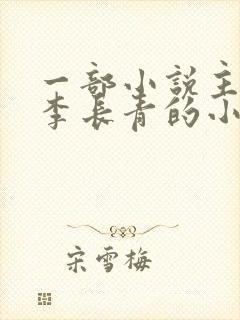 一部小说主
李长青的小
宋雪梅